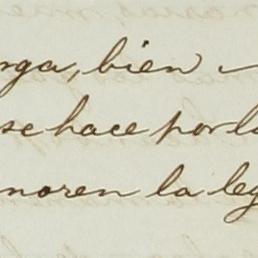 rga, bien
se hace por l
noren la leg